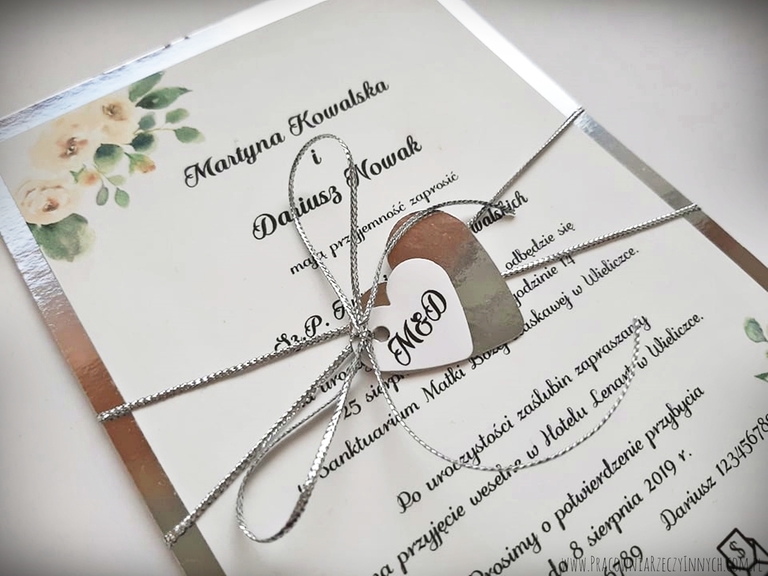 Martyna Kowalska
i
Dariusz Nowak
mają przyjemność zaprosić
Sz.P.
walskich
odbędzie się
25 sierp
godzinie
Sanktuarium Matki Bożej Łaskawej w Wieliczce.
Po uroczystości zaślubin zapraszamy
na przyjęcie weselne w Hotelu Lenart w Wieliczce.
Prosimy o potwierdzenie przybycia
do 8 sierpnia 2019 r.
89
Dariusz 123456789
M&D
www.PracowniaRzeczyInnych.com.pl